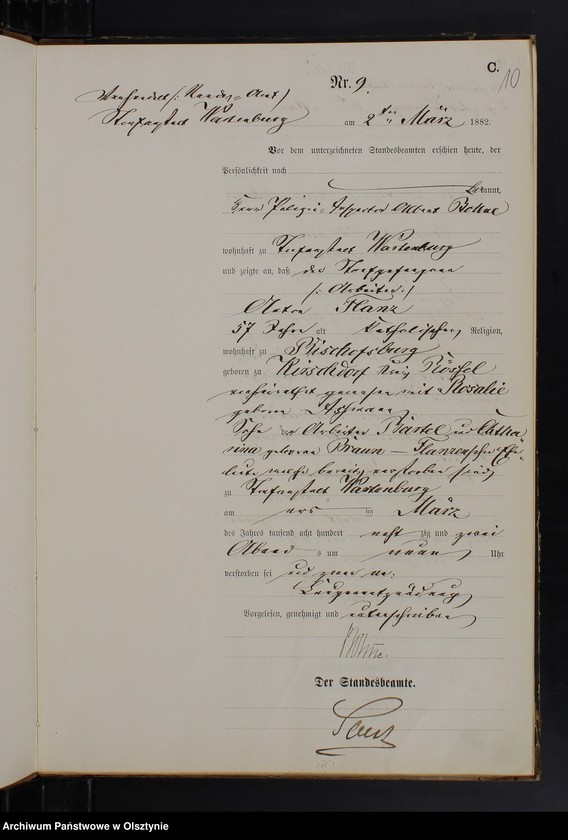 C.
10
Nr. 9.
Strafanstalt Wartenburg
am 2ten März 1882.
Vor dem unterzeichneten Standesbeamten erschien heute, der
Persönlichkeit nach
bekannt,
Herr Polizei-Inspector Albert
wohnhaft zu Strafanstalt Wartenburg
und zeigte an, daß der Strafgefangene
/: Arbeiter :/
Anton Flanz
57 Jahre alt Katholischer Religion,
wohnhaft zu Bischofsburg
geboren zu Kirschdorf Kreis Rössel
verheirathet gewesen mit Rosalie
geborene
Sohn der Arbeiter Bartel und Catha-
rina geborene Braun — Flanzenschen Ehe-
leute welche bereits verstorben sind
zu Strafanstalt Wartenburg
am ersten März
des Jahres tausend acht hundert achtzig und zwei
Abends um neun Uhr
verstorben sei und zwar an:
Lungenentzündung
Vorgelesen, genehmigt und unterschrieben
Der Standesbeamte.
Archiwum Państwowe w Olsztynie